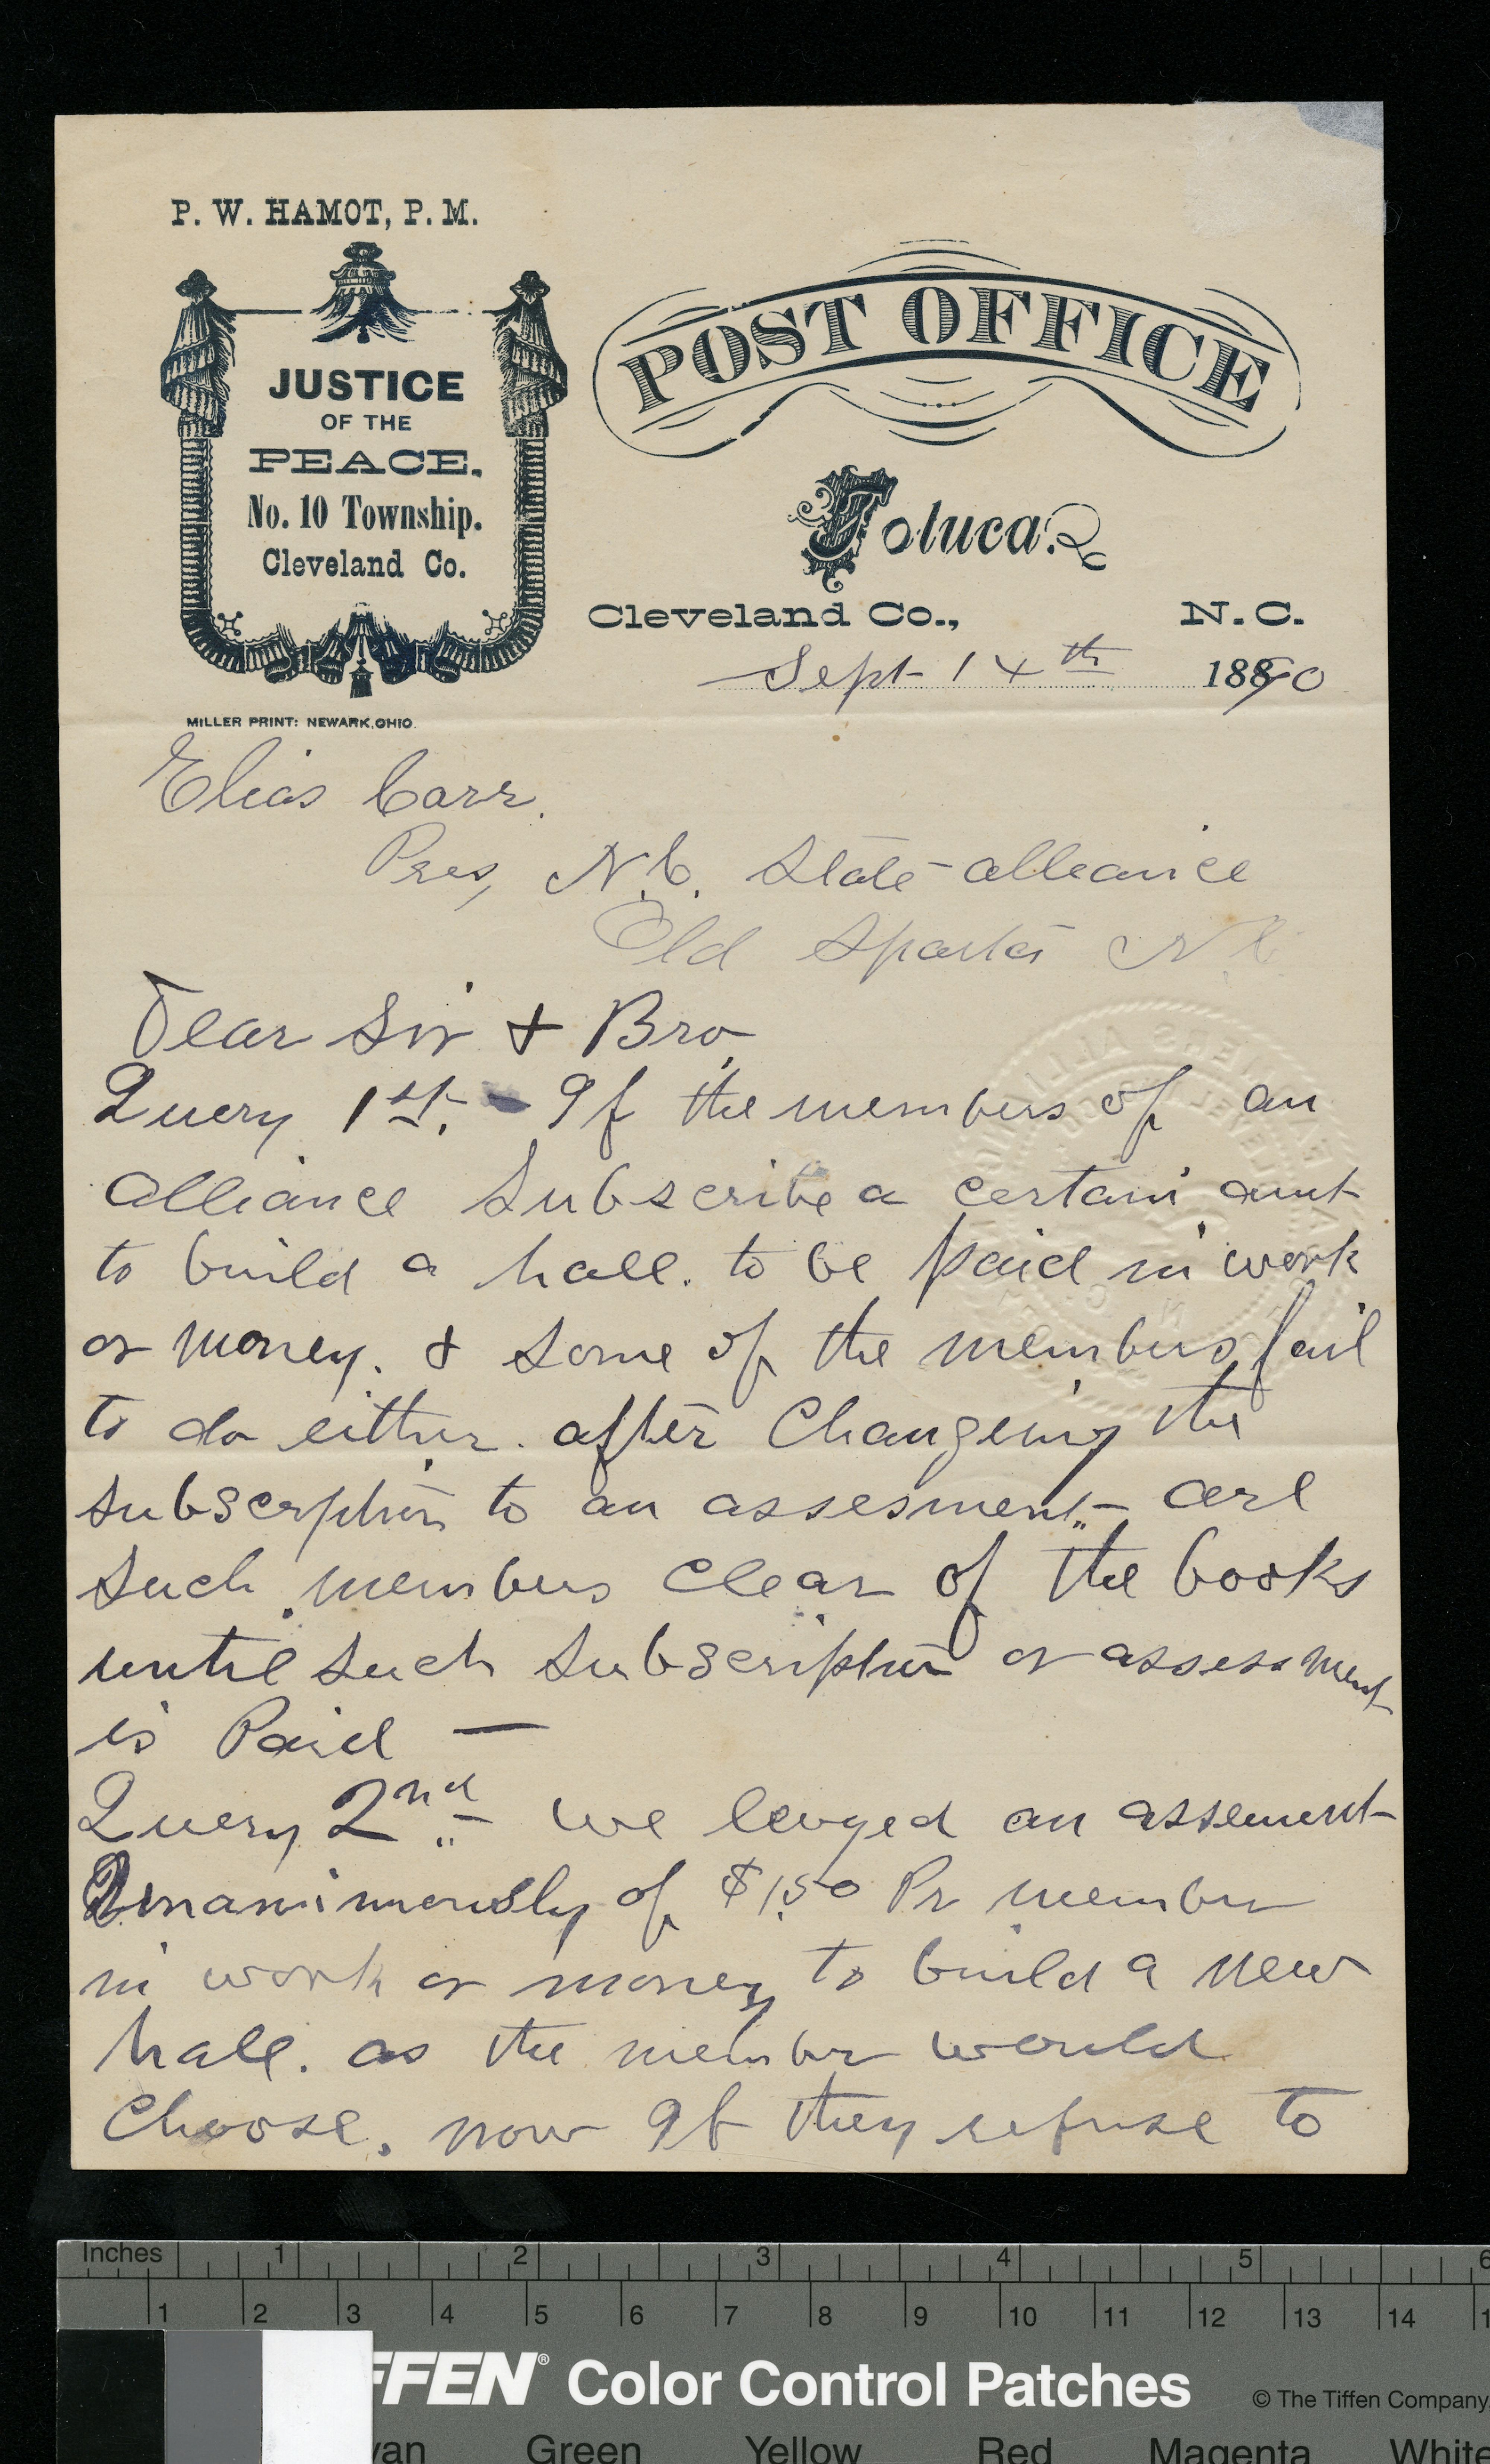 P. W. HAMOT, P. M.
JUSTICE
OF THE
PEACE,
No. 10 Township.
Cleveland Co.
MILLER PRINT: NEWARK, OHIO.
POST OFFICE
Toluca.
Cleveland Co., N. C.
Sept 14th 1890
Elias Carr.
Pres, N.C. State alleance
Old Sparta N.C
Dear Sir & Bro,
Query 1st. - If the members of an
alliance Subscribe a certain amt
to build a hall. to be paid in work
or money. & some of the members fail
to do either. after Changeing the
subscrption to an assesment - are
such members clear of the books
until such subscription or assessment
is Paid —
Query 2nd - we levyed an assement
Unanimously of $1.50 Pr member
in work or money to build a new
hall. as the member would
choose. now If they refuse to
Inches 1 2 3 4 5 6
1 2 3 4 5 6 7 8 9 10 11 12 13 14
FFEN® Color Control Patches © The Tiffen Company
yan Green Yellow Red Magenta White